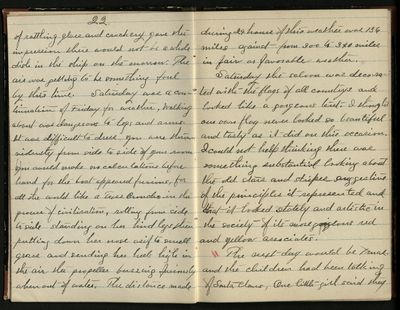 22
of rattling glass and crockery gave the
impression there would not be a whole
dish in the ship on the morrow. The
air was getting to be something foul
by this time. Saturday was a con-
tinuation of Friday for weather, walking
about was dangerous to legs and arms.
It was difficult to dress you were thrown
violently from side to side of your room
you could make no calculations before
hand for the boat appeared furious, for
all the world like a broncho in the
process of civilization, rolling from side
to side standing on her hind legs then
putting down her nose as if to smell
grass and sending her heels high in
the air the propeller buzzing furiously
when out of water. The distance made
during 24 hours of this weather was 136
miles against from 300 to 340 miles
in fair or favorable weather.
Saturday the saloon was decora-
ted with the flags of all countries and
looked like a gorgeous tent. I thought
our own flag never looked so beautiful
and tasty as it did on this occasion.
I could not help thinking there was
something substantial looking about
the old stars and stripes suggestive
of the principles it represented and
that it looked stately and artistic in
the society of its more red
and yellow associates.
The next day would be Xmas.
and the children had been talking
of Santa Claus, One little girl said they